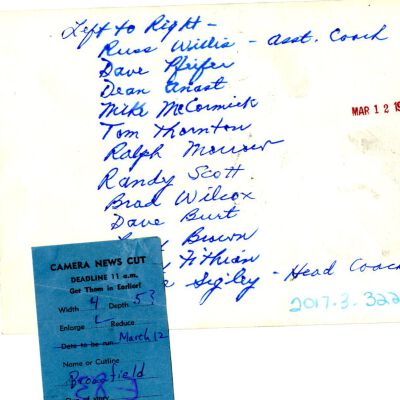 Left to Right -
Russ Willis - asst. Coach
Dave Pfeifer
Dean Anast
Mike McCormick
Tom Thornton
MAR 1 2 19
Ralph Morrow
Randy Scott
Brad Wilcox
Dave Burt
Brown
Fithian
Sigley - Head Coac
2017.3.322
CAMERA NEWS CUT
DEADLINE 11 a.m.
Get Them in Earlier!
Width 4 Depth 5 3
Enlarge Reduce
Date to be run March 12
Name or Cutline
Broomfield